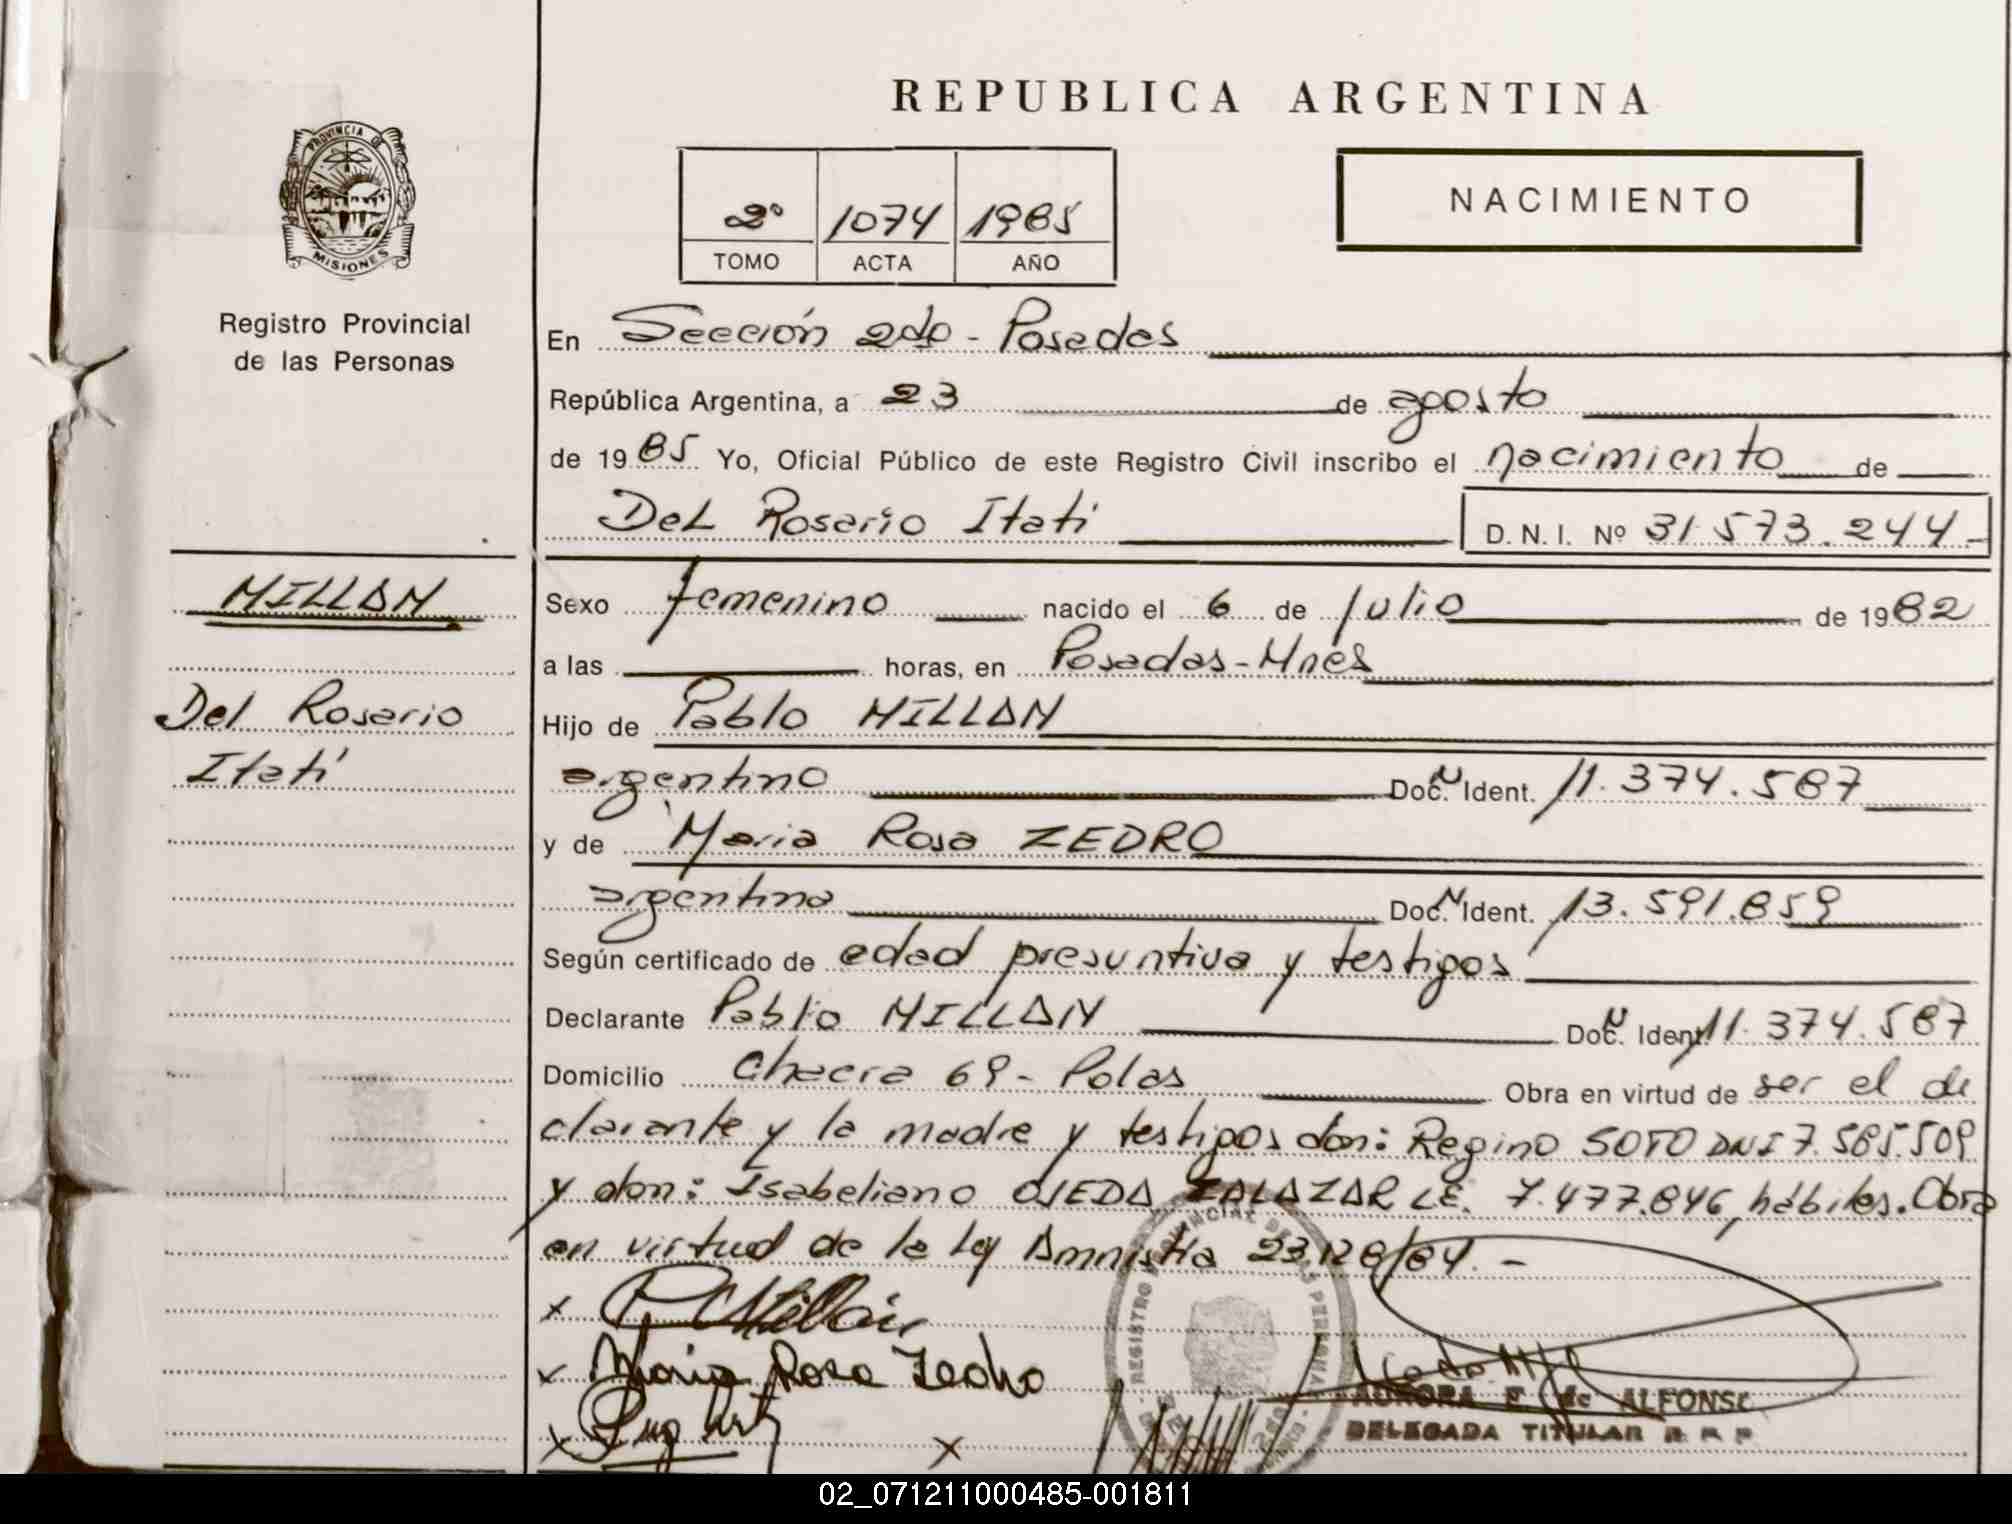 REPUBLICA ARGENTINA
PROVINCIA DE
MISIONES
Registro Provincial
de las Personas
2º 1074 1985
TOMO ACTA AÑO
NACIMIENTO
En Sección 2do - Posadas
República Argentina, a 23 de agosto
de 1985 Yo, Oficial Público de este Registro Civil inscribo el nacimiento de
Del Rosario Itati D. N. I. Nº 31.573.244-
MILLAN
Del Rosario
Itatí
Sexo femenino nacido el 6 de Julio de 1982
a las horas, en Posadas-Mnes
Hijo de Pablo MILLAN
argentino Doc. N Ident. 11.374.587
y de Maria Rosa ZEDRO
argentina Doc. N Ident. 13.591.859
Según certificado de edad presuntiva y testigos
Declarante Pablo MILLAN Doc. N Ident. 11.374.587
Domicilio Chacra 69 - Pdas Obra en virtud de ser el de
clarante y la madre y testigos don: Regino SOTO DNI 7.585.509
y don: Isabeliano OJEDA ZALAZAR LE. 7.477.846, hábiles. Obra
en virtud de la ley Amnistia 23.128/84. -
x P. Millán
x Maria Rosa Zedro
x
x
REGISTRO PROVINCIAL DE LAS PERSONAS
AURORA F. de ALFONSO
DELEGADA TITULAR R. P. P.
02_071211000485-001811